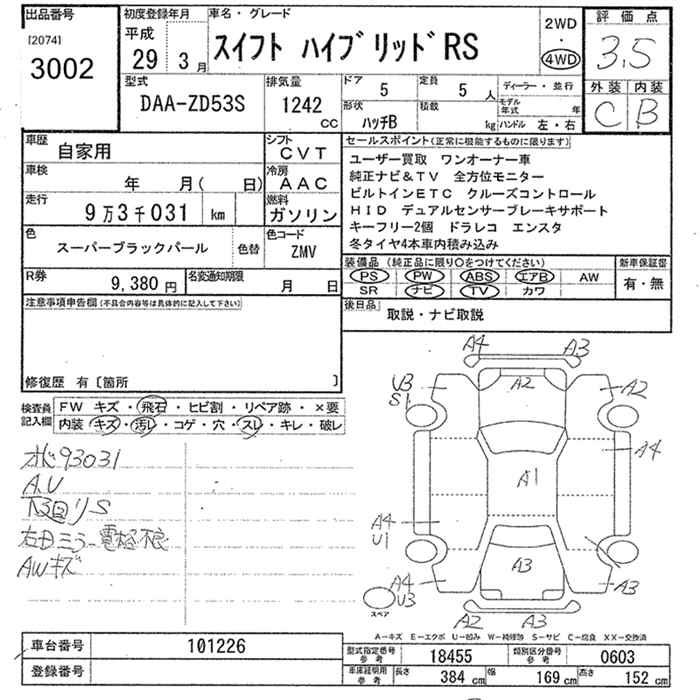 出品番号
[2074]
3002
初度登録年月
平成
29 3月
車名・グレード
スイフト ハイブリッドRS
2WD
・
4WD
評価点
3.5
外装 内装
C B
型式
DAA-ZD53S
排気量
1242
cc
ドア
5
定員
5 人
形状
ハッチB
積載
kg
ディーラー・並行
モデル年式 年
ハンドル 左・右
車歴
自家用
シフト
CVT
車検
年 月( 日)
冷房
AAC
走行
9万3千031 km
燃料
ガソリン
色
スーパーブラックパール
色替
色コード
ZMV
R券
9,380円
名変通知期限
月 日
セールスポイント(正常に機能するものに限ります)
ユーザー買取 ワンオーナー車
純正ナビ&TV 全方位モニター
ビルトインETC クルーズコントロール
HID デュアルセンサーブレーキサポート
キーフリー2個 ドラレコ エンスタ
冬タイヤ4本車内積み込み
装備品(純正品に限り○をつけてください)
PS PW ABS エアB AW
SR ナビ TV カワ
新車保証書
有・無
後日品
取説・ナビ取説
注意事項申告欄(不具合内容等は具体的に記入して下さい)
修復歴 有〔箇所 〕
検査員記入欄
FW キズ・飛石・ヒビ割・リペア跡・×要
内装・キズ・汚レ・コゲ・穴・スレ・キレ・破レ
93031
A.U
下回リS
右ドミラー電格不良
AWキズ
A4 A3
U3
S1
A2
A2
A4
A1
A4
U1
A3
A4
U3
A3
スペア
A2 A3
A-キズ E-エクボ U-凹み W-補修跡 S-サビ C-腐食 XX-交換済
車台番号
101226
登録番号
型式指定番号
参考
18455
類別区分番号
参考
0603
車庫証明用
参考
長さ 384 cm 幅 169 cm 高さ 152 cm